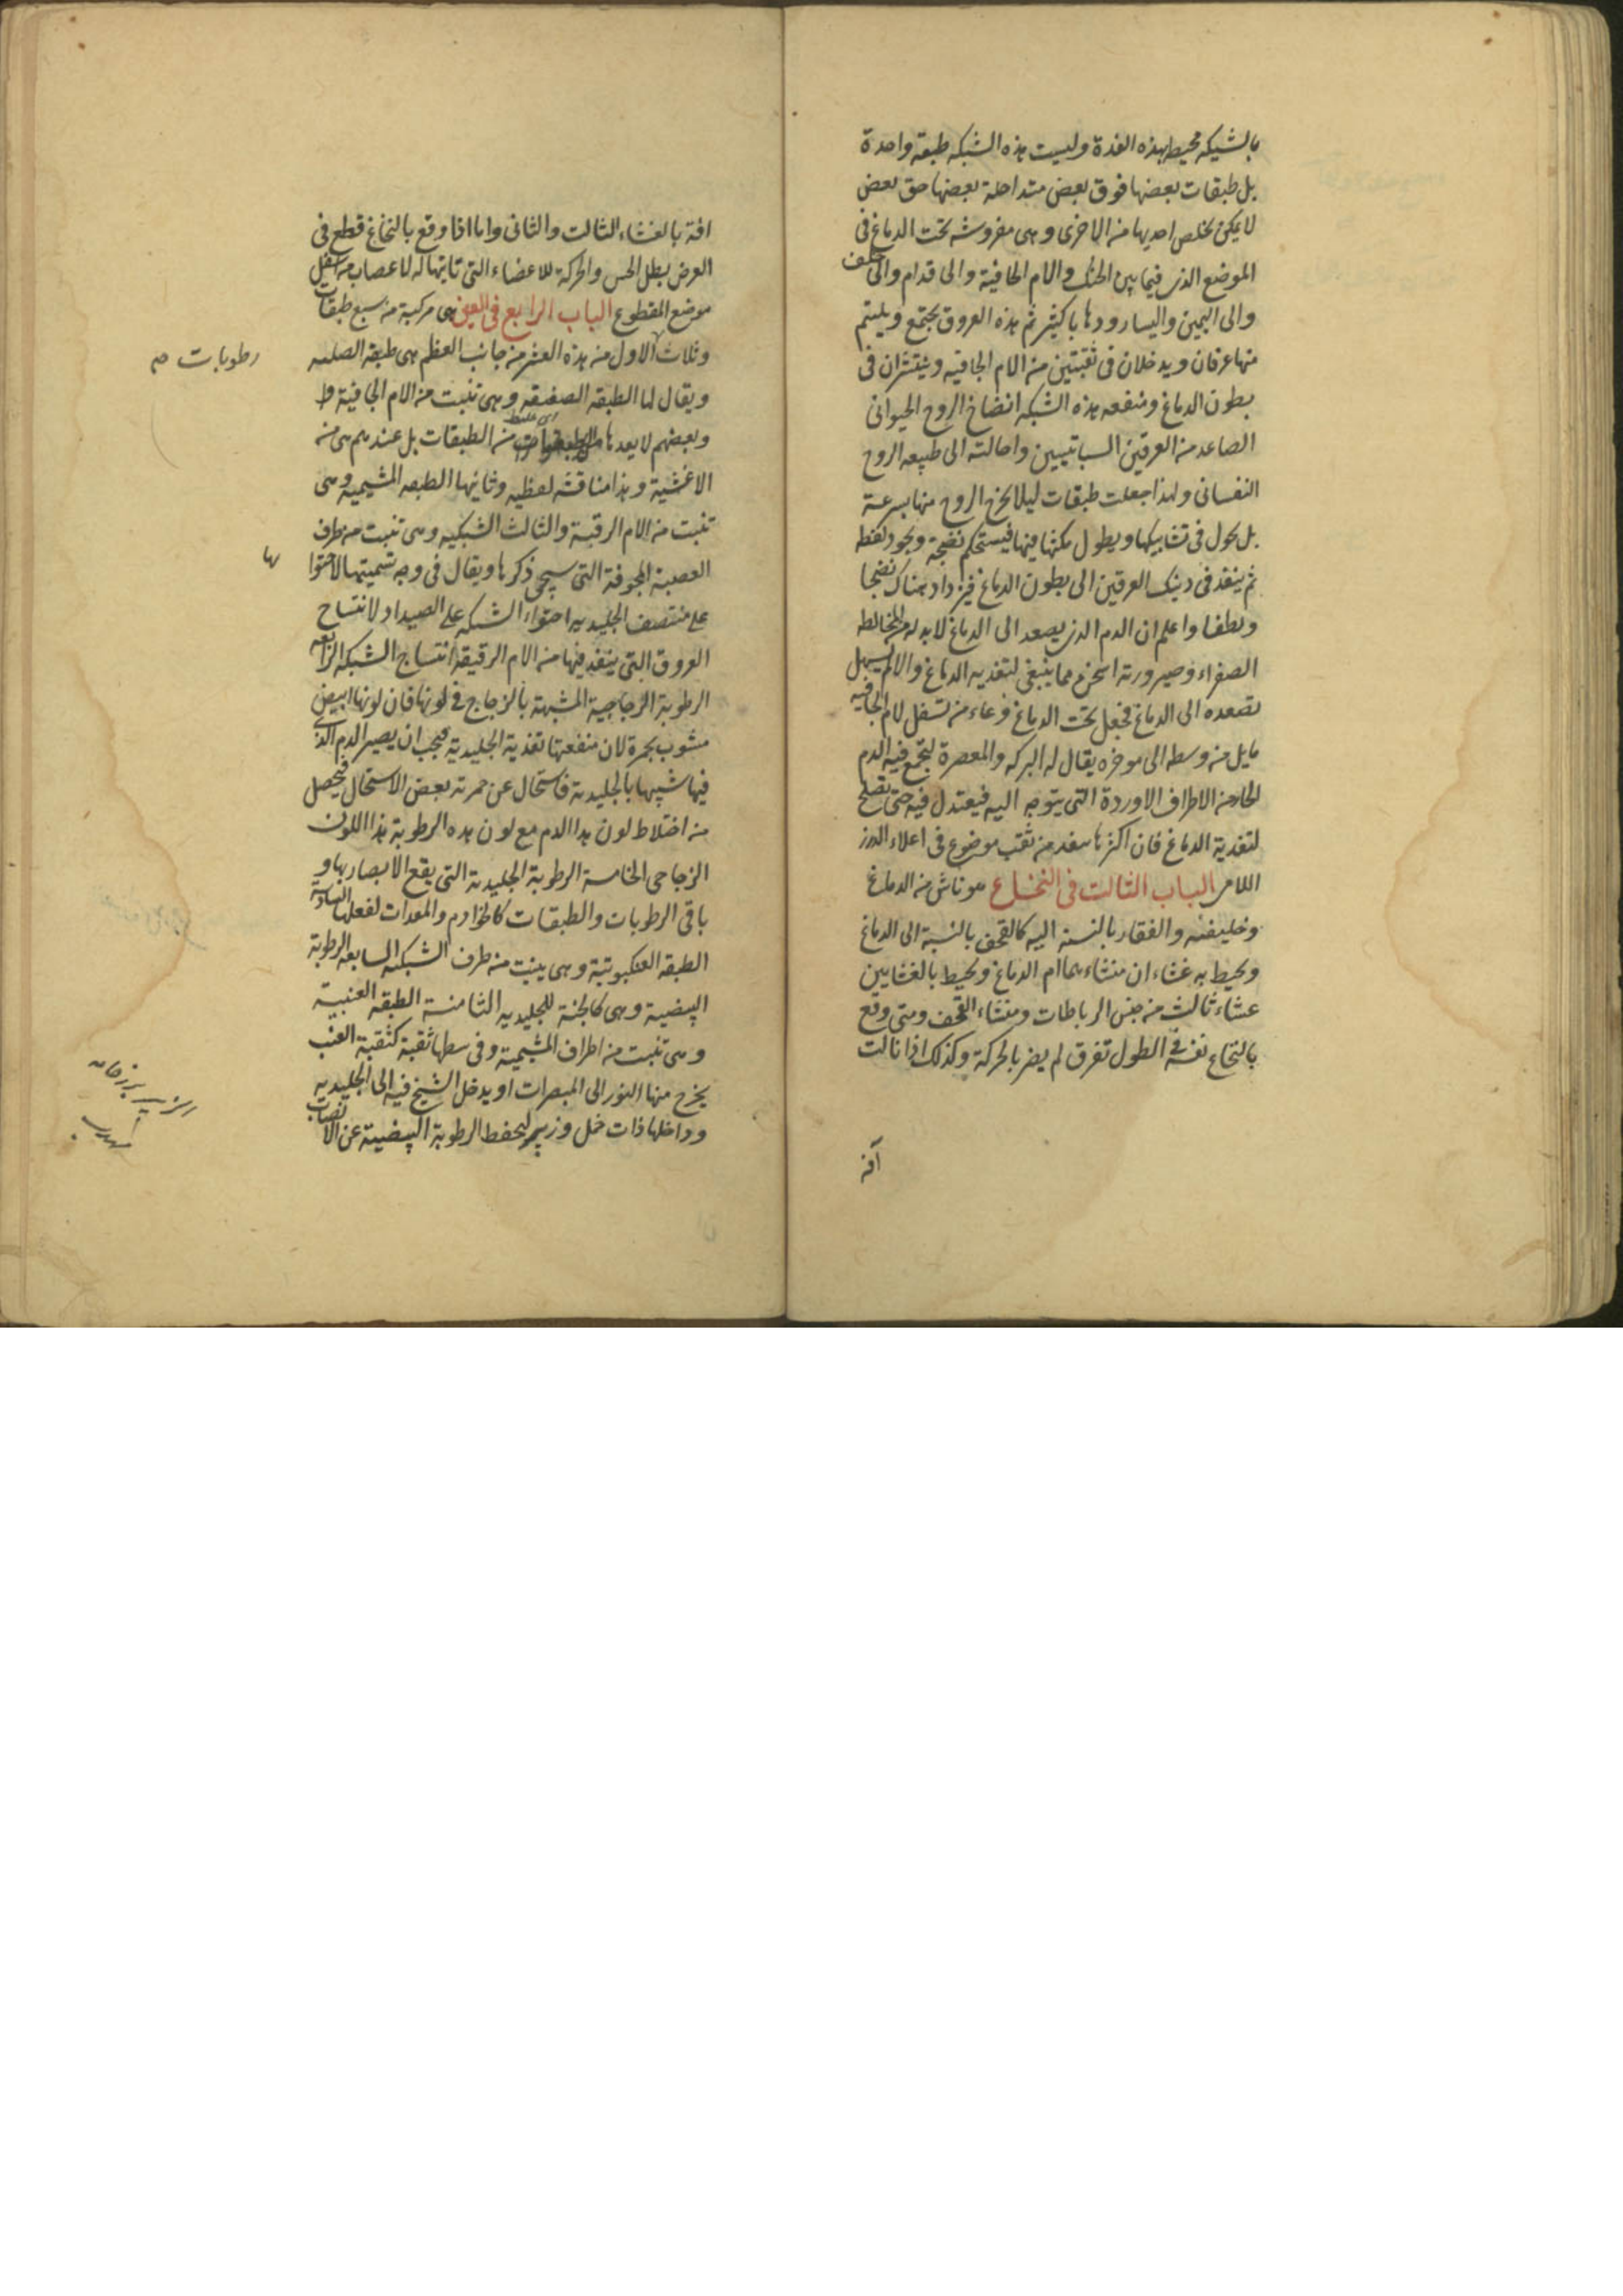 بالشبكه محيط بهذه الغدة وليست هذه الشبكه طبقة واحدة
بل طبقات بعضها فوق بعض متداخلة بعضها حق بعض
لا يمكن تخلص احديها من الاخرى وهى مفروشه تحت الدماغ فى
الموضع الذى فيما بين الحنك والام الجافية والى قدام والى خلف
والى اليمين واليسار ودها باكثير ثم هذه العروق يجتمع ويلتئم
منها عرقان ويدخلان فى ثقبتين من الام الجافيه وينتشران فى
بطون الدماغ ومنفعه هذه الشبكه انضاخ الروح الحيوانى
الصاعد من العرقين السباتيين واحالته الى طبيعه الروح
النفسانى ولهذا جعلت طبقات ليلا يخرج الروح منها بسرعة
بل يحول فى تشابيكها ويطول مكثها فيها فيستحكم نضجه ويجود
ثم ينفذ فى دينك العرقين الى بطون الدماغ فيزداد هناك نضجا
ولطفا واعلم ان الدم الذى يصعد الى الدماغ لابد له من المخالطه
الصفراء وصيرورته اسخن مما ينبغى لتغذيه الدماغ والا لم يسهل
تصعده الى الدماغ فجعل تحت الدماغ وعاء من تسفل لام الجافيه
مايل من وسطه الى موخره يقال له البركه والمعصرة ليجتمع فيه الدم
الحار من الاطراف الاوردة التى يتوجه اليه فيعتدل فيه حتى تصلح
لتغذية الدماغ فان اكثرها سفد من ثقب موضوع فى اعلاء الدرز
اللامى الباب الثالث فى النخاع هو ناش من الدماغ
وخليفته والفقار بالنسبه اليه كالقحف بالنسبة الى الدماغ
ويحيط به غشاء ان منشاءهما ام الدماغ ويحيط بالغشايين
عشاء ثالث من جنس الرباطات ومنشاء القحف ومتى وقع
بالنخاع نفسه فى الطول تفرق لم يضر بالحركة وكذلك اذا نالت
آفة
افة بالغشاء الثالث والثانى واما اذا وقع بالنخاع قطع فى
العرض بطل الحس والحركة للاعضاء التى تايتها له لاعصاب من اسفل
موضع المقطوع الباب الرابع فى العين هى مركبة من سبع طبقات
وثلاث الاول من هذه العشر من جانب العظم هى طبقة الصلبه
رطوبات صح
ويقال لها الطبقه الصفيقه وهى تنبت من الام الجافية و
وبعضهم لا يعدها من الطبقات بل عندهم هى من
الاغشية وهذا مناقشه لفظيه وثانيها الطبقه المشيميه وهى
تنبت من الام الرقبة والثالث الشبكيه وهى تنبت من طرف
العصبة المجوفة التى سيجى ذكرها ويقال فى وجه تسميتها لاحتوا
ئها
على منتصف الجليديه احتواء الشبكه على الصيد او لانتساج
العروق التى ينفذ فيها من الام الرقيقة انتساج الشبكه الرابعه
الرطوبة الزجاجية المشبهة بالزجاج فى لونها فان لونها ابيض
مشوب بحمرة لان منفعتها تغذية الجليدية فيجب ان يصير الدم الذى
فيها شبيها بالجليديه فاستحال عن حمرته بعض الاستحال فيحصل
من اختلاط لون هذا الدم مع لون هذه الرطوبة هذا اللون
الزجاجى الخامسة الرطوبة الجليدية التى يقع الابصار بها و
باقى الرطوبات والطبقات كالخوادم والمعدات لفعلها السادسة
الطبقه العنكبوتية وهى ينبت من طرف الشبكيه السابعه الرطوبة
البيضية وهى كالجنة للجليديه الثامنة الطبقه العنبية
وهى تنبت من اطراف المشيمية وفى سطها ثقبة كثقبة العنب
يخرج منها النور الى المبصرات او يدخل الشبح فيه الى الجليديه
وداخلها ذات خمل وزبير ليحفظ الرطوبة البيضية عن الانصاب